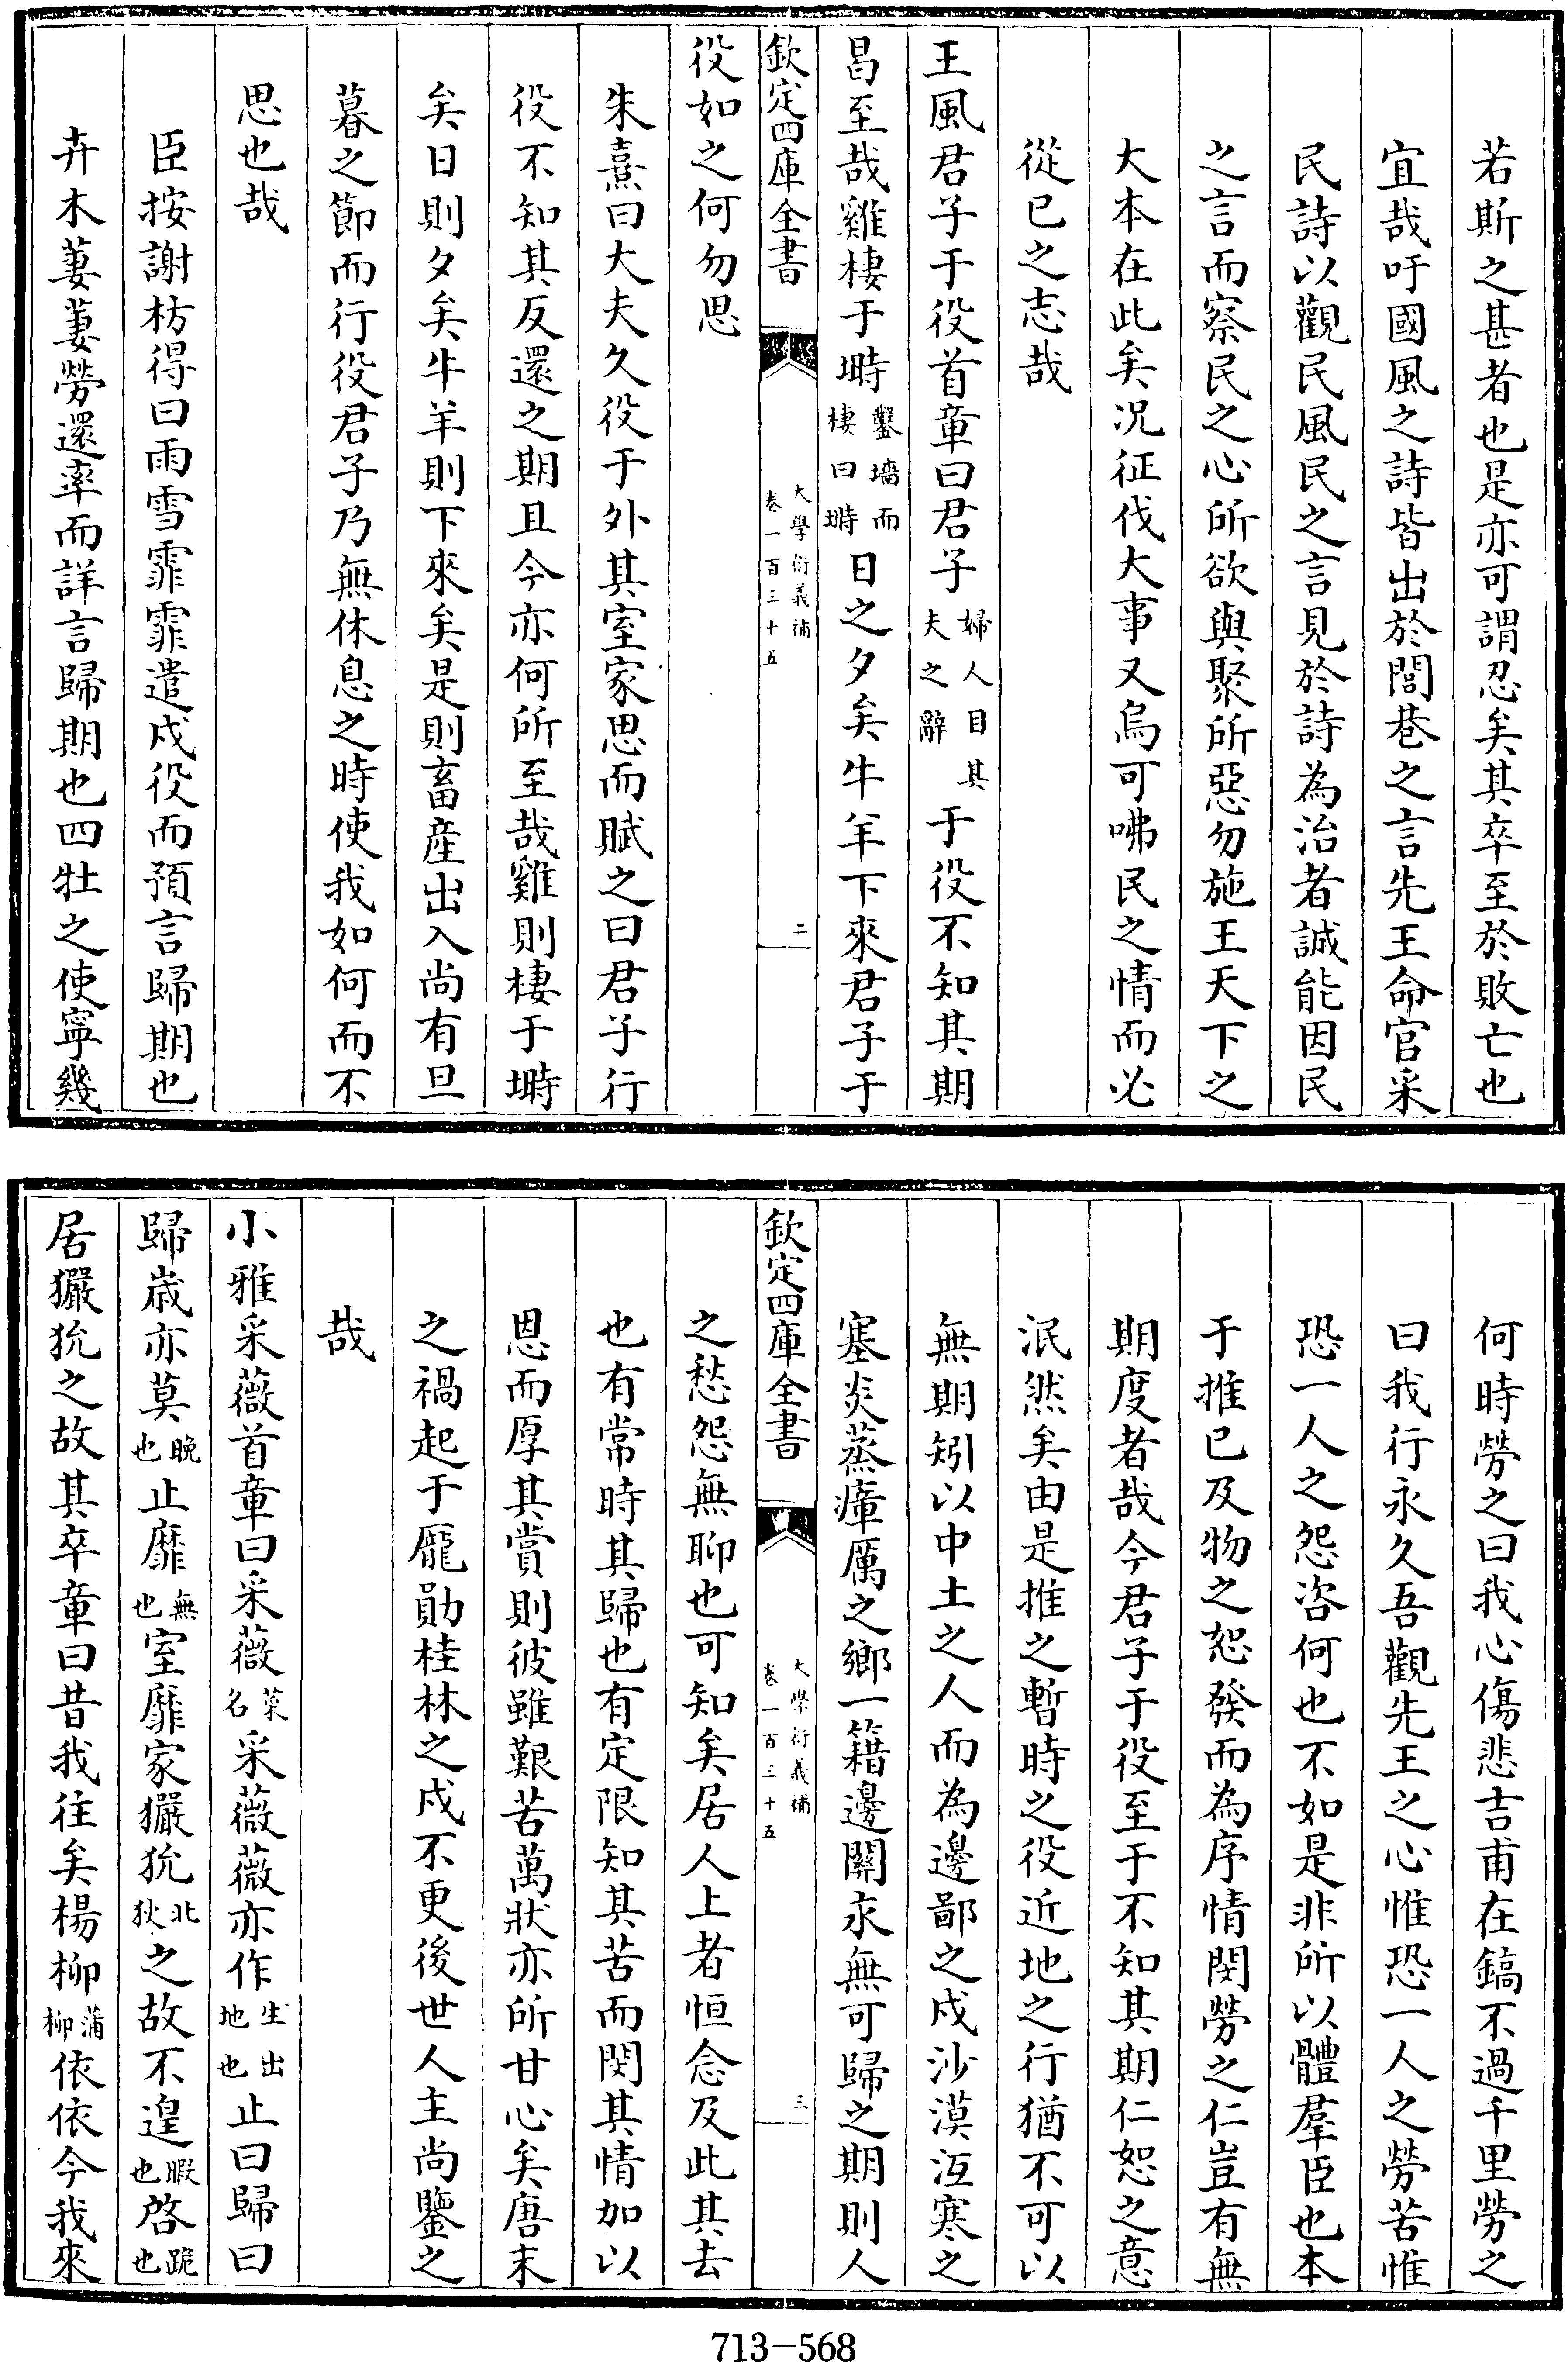 若斯之甚者也是亦可謂忍矣其卒至於敗亡也
宜哉吁國風之詩皆出於閭巷之言先王命官采
民詩以觀民風民之言見於詩為治者誠能因民
之言而察民之心所欲與聚所惡勿施王天下之
大本在此矣况征伐大事又烏可咈民之情而必
從已之志哉
王風君子于役首章曰君子婦人目其夫之辭于役不知其期
曷至哉雞棲于塒鑿墻而棲曰塒日之夕矣牛羊下來君子于
欽定四庫全書
大學衍義補
卷一百三十五
二
役如之何勿思
朱熹曰大夫久役于外其室家思而賦之曰君子行
役不知其反還之期且今亦何所至哉雞則棲于塒
矣日則夕矣牛羊則下來矣是則畜產出入尚有旦
暮之節而行役君子乃無休息之時使我如何而不
思也哉
臣按謝枋得曰雨雪霏霏遣戍役而預言歸期也
卉木萋萋勞還率而詳言歸期也四牡之使寧幾
何時勞之曰我心傷悲吉甫在鎬不過千里勞之
曰我行永久吾觀先王之心惟恐一人之勞苦惟
恐一人之怨咨何也不如是非所以體羣臣也本
于推已及物之恕發而為序情閔勞之仁豈有無
期度者哉今君子于役至于不知其期仁恕之意
泯然矣由是推之暫時之役近地之行猶不可以
無期矧以中土之人而為邊鄙之戍沙漠沍寒之
塞炎蒸瘴厲之鄉一籍邊關永無可歸之期則人
欽定四庫全書
大學衍義補
卷一百三十五
三
之愁怨無聊也可知矣居人上者恒念及此其去
也有常時其歸也有定限知其苦而閔其情加以
恩而厚其賞則彼雖艱苦萬狀亦所甘心矣唐末
之禍起于龎勛桂林之戍不更後世人主尚鑒之
哉
小雅采薇首章曰采薇菜名采薇薇亦作生出地也止曰歸曰
歸歲亦莫晚也止靡無也室靡家玁狁北狄之故不遑暇也啓跪也
居玁狁之故其卒章曰昔我往矣楊柳蒲柳依依今我來
713-568